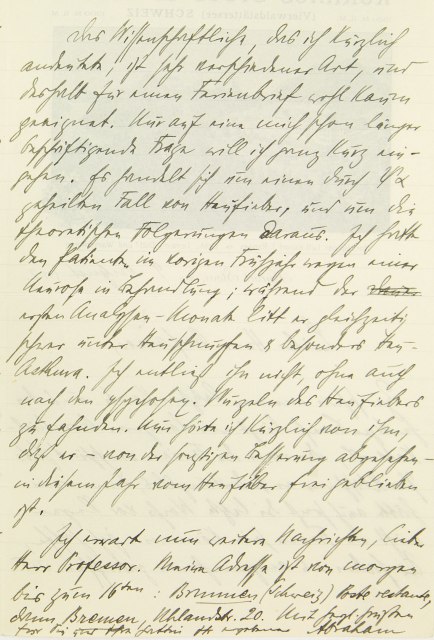 Das Wissenschaftliche, das ich kürzlich
andeutete, ist sehr verschiedener Art, und
deshalb für einen Ferienbrief wohl kaum
geeignet. Nur auf eine mich schon länger
beschäftigende Frage will ich ganz kurz ein-
gehen. Es handelt sich um einen durch ΨA
geheilten Fall von Heufieber, und um die
theoretischen Folgerungen daraus. Ich hatte
den Patienten im vorigen Frühjahr wegen einer
Neurose in Behandlung; während der
ersten Analysen-Monate litt er gleichzeitig
schwer unter Heuschnupfen & besonders Heu-
Asthma. Ich entließ ihn nicht, ohne auch
nach den psycholog. Wurzeln des Heufiebers
zu fahnden. Nun höre ich kürzlich von ihm,
daß er – von der sonstigen Besserung abgesehen –
in diesem Jahr vom Heufieber frei geblieben
ist.
Ich erwarte nun weitere Nachrichten, lieber
Herr Professor. Meine Adresse ist von morgen
bis zum 16ten: Brunnen (Schweiz) Poste restante,
dann Bremen, Uhlandstr. 20. Mit herzl. Grüßen
Abraham